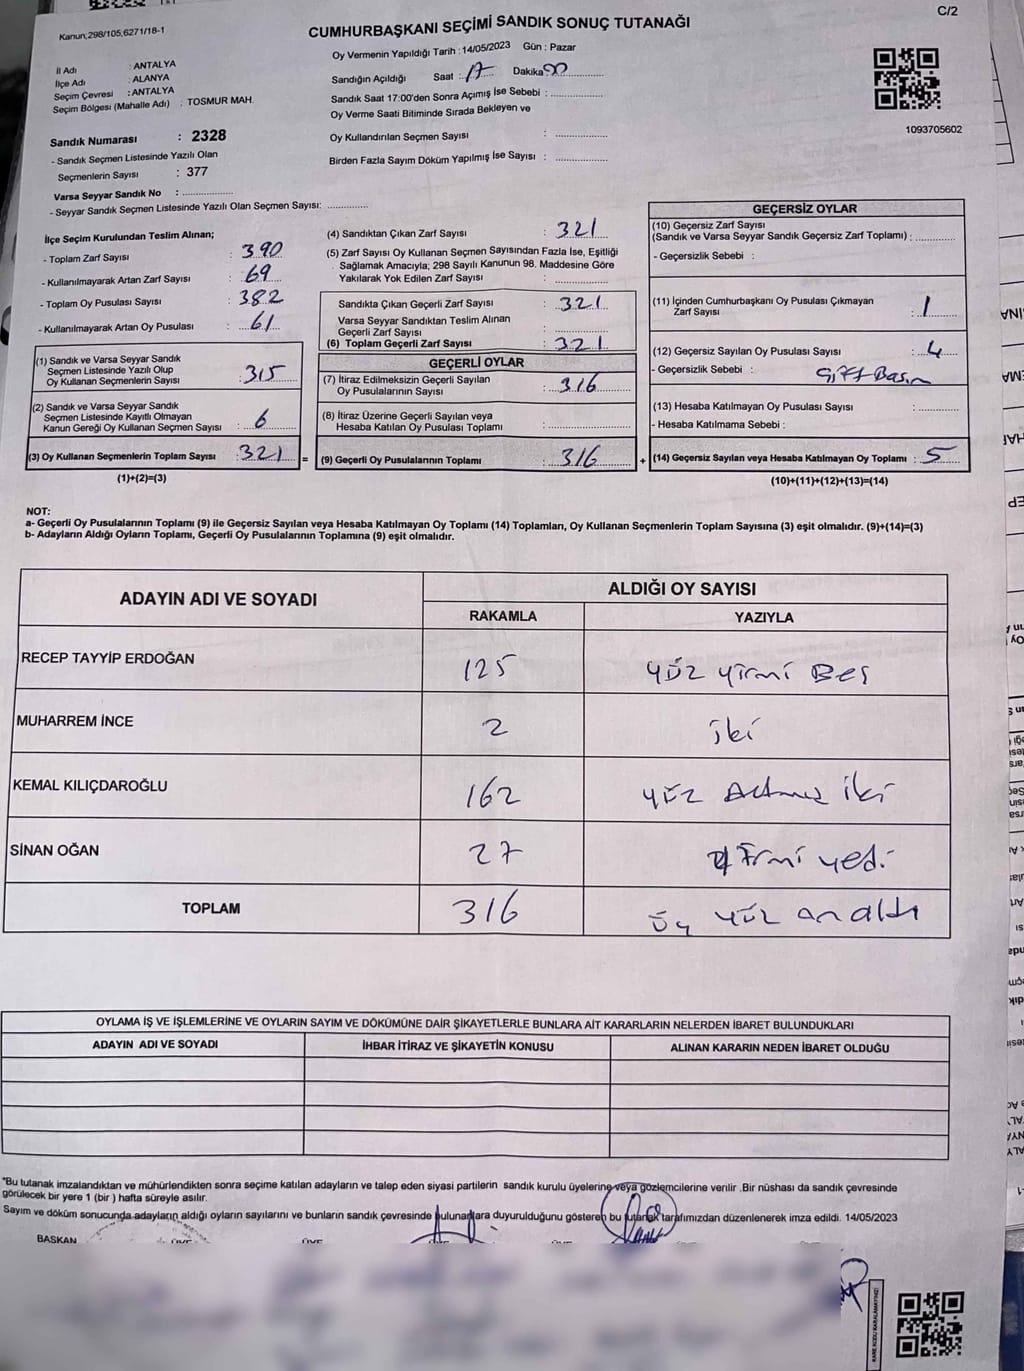 C/2
Kanun;298/105,6271/18-1
CUMHURBAŞKANI SEÇİMİ SANDIK SONUÇ TUTANAĞI
Oy Vermenin Yapıldığı Tarih : 14/05/2023 Gün : Pazar
İl Adı : ANTALYA
İlçe Adı : ALANYA
Seçim Çevresi : ANTALYA
Seçim Bölgesi (Mahalle Adı) : TOSMUR MAH.
Sandığın Açıldığı Saat : 17 Dakika 00
Sandık Saat 17:00'den Sonra Açımış İse Sebebi :
Oy Verme Saati Bitiminde Sırada Bekleyen ve
Oy Kullandırılan Seçmen Sayısı :
Birden Fazla Sayım Döküm Yapılmış İse Sayısı :
1093705602
Sandık Numarası : 2328
- Sandık Seçmen Listesinde Yazılı Olan
Seçmenlerin Sayısı : 377
Varsa Seyyar Sandık No :
- Seyyar Sandık Seçmen Listesinde Yazılı Olan Seçmen Sayısı:
İlçe Seçim Kurulundan Teslim Alınan;
- Toplam Zarf Sayısı : 390
- Kullanılmayarak Artan Zarf Sayısı : 69
- Toplam Oy Pusulası Sayısı : 382
- Kullanılmayarak Artan Oy Pusulası : 61
(1) Sandık ve Varsa Seyyar Sandık
Seçmen Listesinde Yazılı Olup
Oy Kullanan Seçmenlerin Sayısı : 315
(2) Sandık ve Varsa Seyyar Sandık
Seçmen Listesinde Kayıtlı Olmayan
Kanun Gereği Oy Kullanan Seçmen Sayısı : 6
(3) Oy Kullanan Seçmenlerin Toplam Sayısı : 321 =
(1)+(2)=(3)
(4) Sandıktan Çıkan Zarf Sayısı : 321
(5) Zarf Sayısı Oy Kullanan Seçmen Sayısından Fazla İse, Eşitliği
Sağlamak Amacıyla; 298 Sayılı Kanunun 98. Maddesine Göre
Yakılarak Yok Edilen Zarf Sayısı :
Sandıkta Çıkan Geçerli Zarf Sayısı : 321
Varsa Seyyar Sandıktan Teslim Alınan
Geçerli Zarf Sayısı :
(6) Toplam Geçerli Zarf Sayısı : 321
GEÇERLİ OYLAR
(7) İtiraz Edilmeksizin Geçerli Sayılan
Oy Pusulalarının Sayısı : 316
(8) İtiraz Üzerine Geçerli Sayılan veya
Hesaba Katılan Oy Pusulası Toplamı :
(9) Geçerli Oy Pusulalarının Toplamı : 316 +
GEÇERSİZ OYLAR
(10) Geçersiz Zarf Sayısı
(Sandık ve Varsa Seyyar Sandık Geçersiz Zarf Toplamı) :
- Geçersizlik Sebebi :
(11) İçinden Cumhurbaşkanı Oy Pusulası Çıkmayan
Zarf Sayısı : 1
(12) Geçersiz Sayılan Oy Pusulası Sayısı : 4
- Geçersizlik Sebebi : Çift Basım
(13) Hesaba Katılmayan Oy Pusulası Sayısı :
- Hesaba Katılmama Sebebi :
(14) Geçersiz Sayılan veya Hesaba Katılmayan Oy Toplamı : 5
(10)+(11)+(12)+(13)=(14)
NOT:
a- Geçerli Oy Pusulalarının Toplamı (9) ile Geçersiz Sayılan veya Hesaba Katılmayan Oy Toplamı (14) Toplamları, Oy Kullanan Seçmenlerin Toplam Sayısına (3) eşit olmalıdır. (9)+(14)=(3)
b- Adayların Aldığı Oyların Toplamı, Geçerli Oy Pusulalarının Toplamına (9) eşit olmalıdır.
ADAYIN ADI VE SOYADI
ALDIĞI OY SAYISI
RAKAMLA YAZIYLA
RECEP TAYYİP ERDOĞAN 125 yüz yirmi Beş
MUHARREM İNCE 2 iki
KEMAL KILIÇDAROĞLU 162 yüz Altmış iki
SİNAN OĞAN 27 yirmi yedi
TOPLAM 316 üç yüz on altı
OYLAMA İŞ VE İŞLEMLERİNE VE OYLARIN SAYIM VE DÖKÜMÜNE DAİR ŞİKAYETLERLE BUNLARA AİT KARARLARIN NELERDEN İBARET BULUNDUKLARI
ADAYIN ADI VE SOYADI İHBAR İTİRAZ VE ŞİKAYETİN KONUSU ALINAN KARARIN NEDEN İBARET OLDUĞU
*Bu tutanak imzalandıktan ve mühürlendikten sonra seçime katılan adayların ve talep eden siyasi partilerin sandık kurulu üyelerine veya gözlemcilerine verilir .Bir nüshası da sandık çevresinde
görülecek bir yere 1 (bir ) hafta süreyle asılır.
Sayım ve döküm sonucunda adayların aldığı oyların sayılarını ve bunların sandık çevresinde bulunanlara duyurulduğunu gösteren bu tutanak tarafımızdan düzenlenerek imza edildi. 14/05/2023
BAŞKAN ÜYE ÜYE
KARE KODU KARALAMAYINIZ!